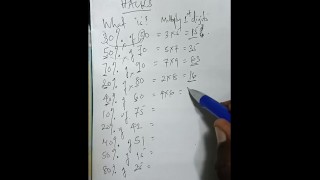 HACKS
What is? Multiply 1st digits
30% of 50 = 3 x 5 = 15
50% of 70 = 5 x 7 = 35
70% of 90 = 7 x 9 = 63
20% of 80 = 2 x 8 = 16
% of 60 = =
10% of 75 =
20% of 42 =
40% of 51 =
50% of =
80% of 25 =